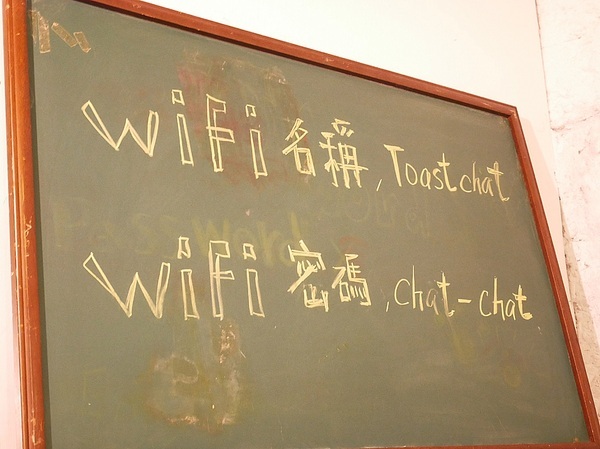 WiFi 名稱, Toast chat
WiFi 密碼, chat-chat
Password